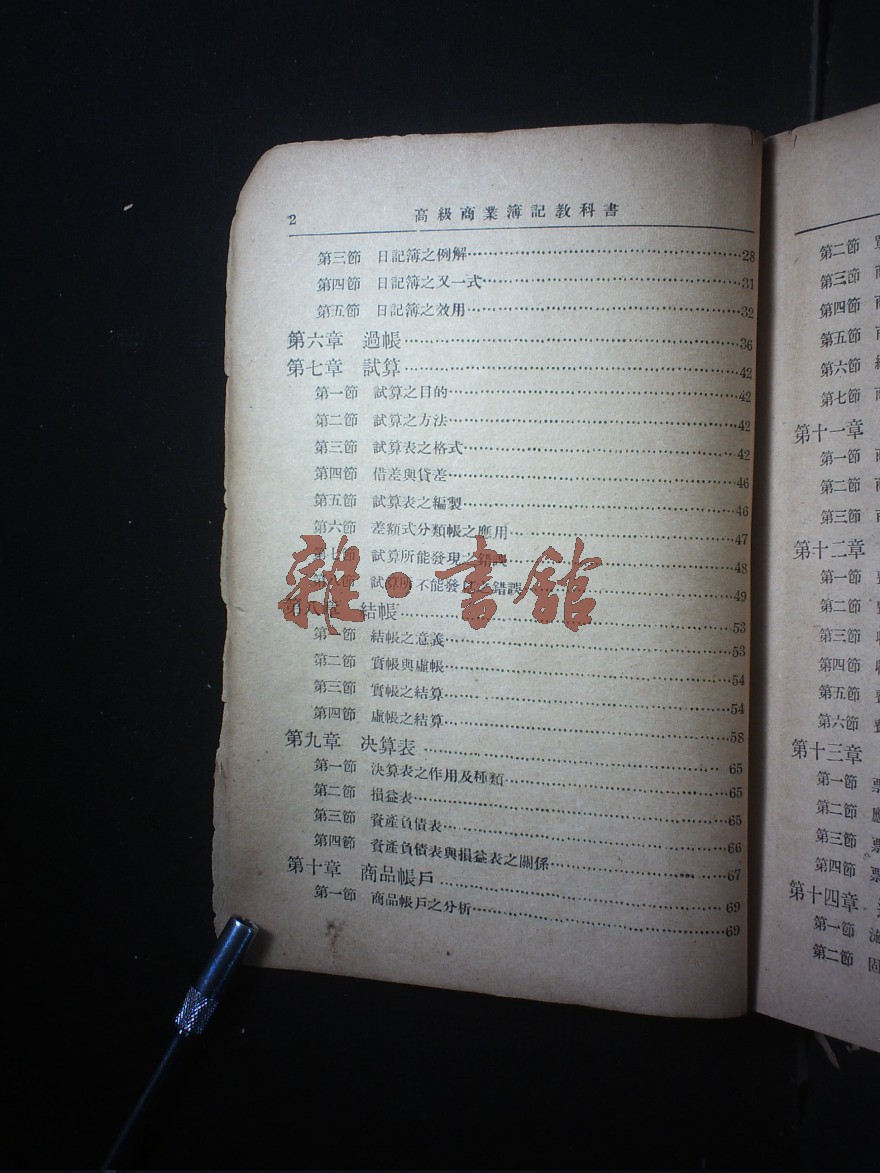 2 高級商業簿記教科書
第三節 日記簿之例解……28
第四節 日記簿之又一式……31
第五節 日記簿之效用……32
第六章 過帳……36
第七章 試算……42
第一節 試算之目的……42
第二節 試算之方法……42
第三節 試算表之格式……42
第四節 借差與貸差……46
第五節 試算表之編製……46
第六節 差額式分類帳之應用……47
第七節 試算所能發現之錯誤……48
第八節 試算所不能發見之錯誤……49
第八章 結帳……53
第一節 結帳之意義……53
第二節 實帳與虛帳……54
第三節 實帳之結算……54
第四節 虛帳之結算……58
第九章 決算表……65
第一節 決算表之作用及種類……65
第二節 損益表……65
第三節 資產負債表……66
第四節 資產負債表與損益表之關係……67
第十章 商品帳戶……69
第一節 商品帳戶之分析……69
雜·書館
第二節
第三節
第四節
第五節
第六節
第七節
第十一章
第一節
第二節
第三節
第十二章
第一節
第二節
第三節
第四節
第五節
第六節
第十三章
第一節 票
第二節 應
第三節 票
第四節 票
第十四章
第一節
第二節 固